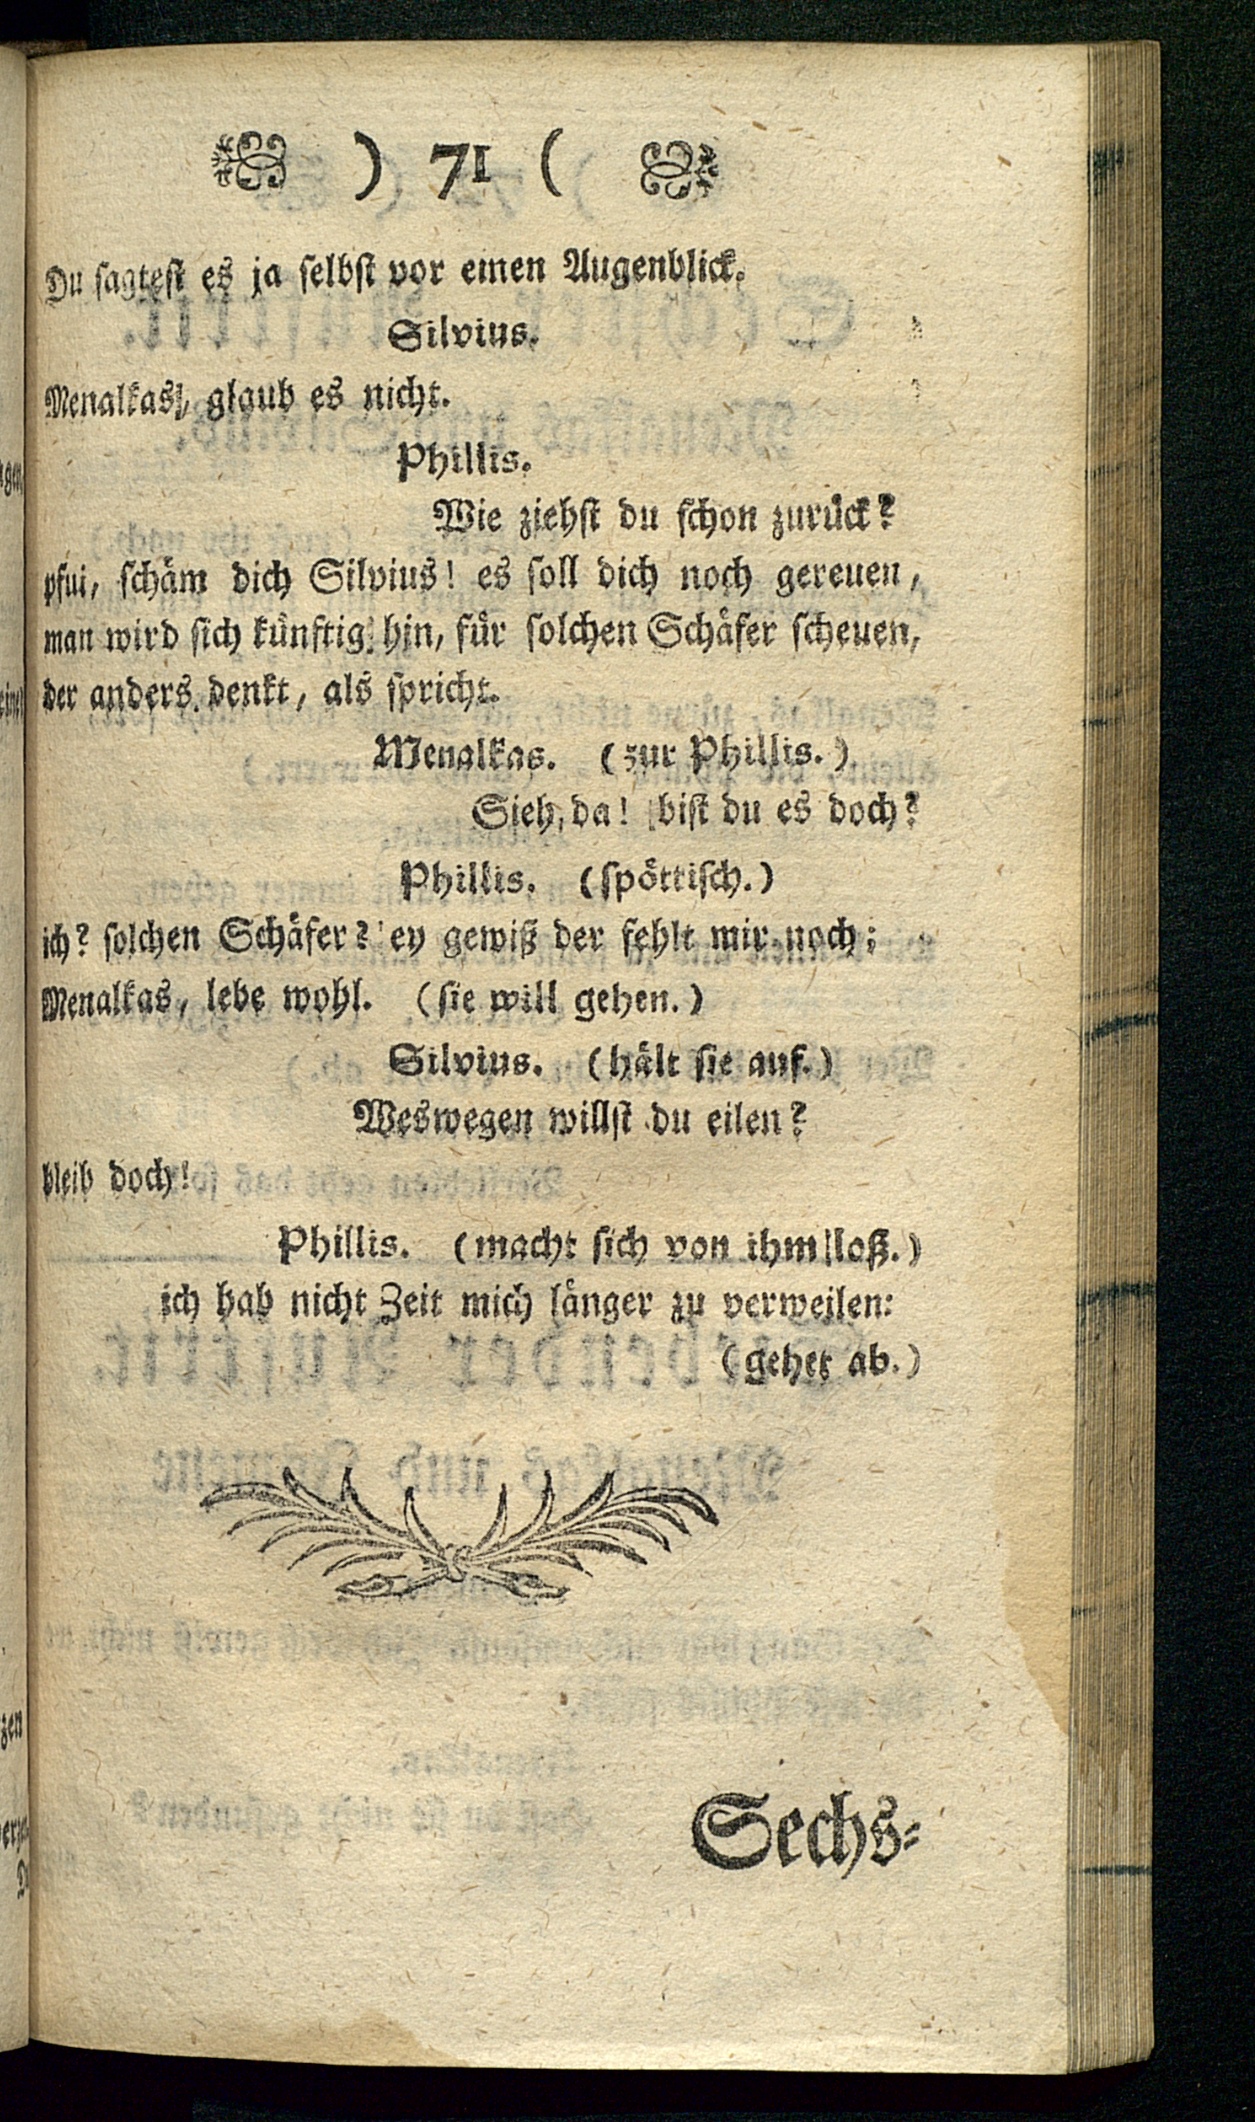 ) 71 (
Du sagtest es ja selbst vor einen Augenblick.
Silvius.
Menalkas, glaub es nicht.
Phillis.
Wie ziehst du schon zurück?
pfui, schäm dich Silvius! es soll dich noch gereuen,
man wird sich künftig hin, für solchen Schäfer scheuen,
der anders denkt, als spricht.
Menalkas. (zur Phillis.)
Sieh, da! bist du es doch?
Phillis. (spöttisch.)
ich? solchen Schäfer? ey gewiß der fehlt mir noch;
Menalkas, lebe wohl. (sie will gehen.)
Silvius. (hält sie auf.)
Weswegen willst du eilen?
bleib doch!
Phillis. (macht sich von ihm loß.)
ich hab nicht Zeit mich länger zu verweilen:
(gehet ab.)
Sechs-